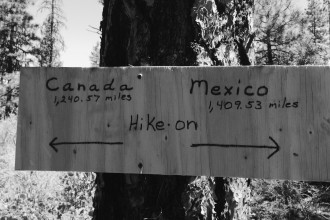 Canada Mexico
1,240.57 miles 1,409.53 miles
Hike·on